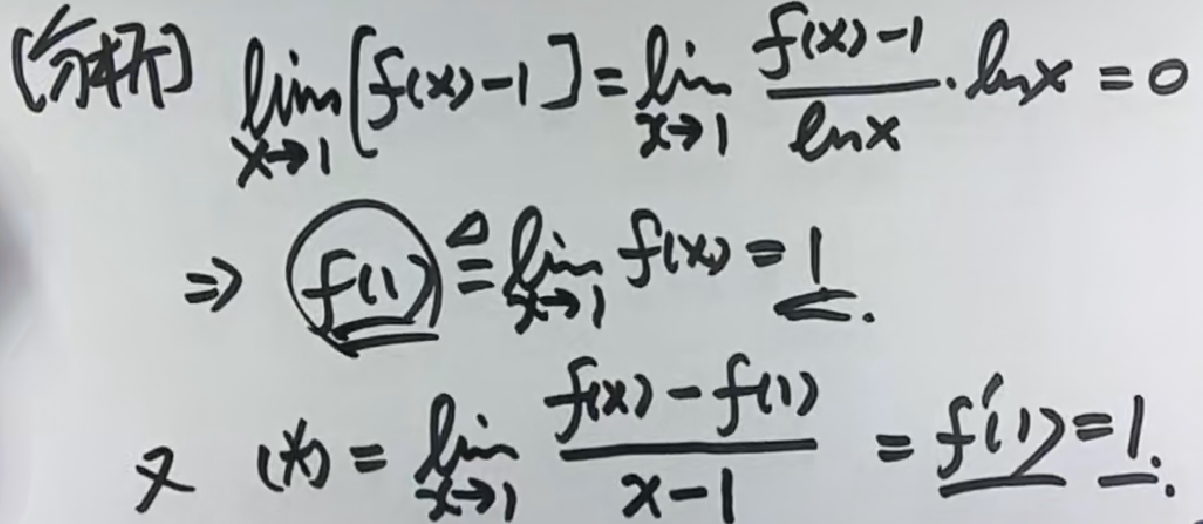 (分析) lim_{x→1} [f(x)-1] = lim_{x→1} \frac{f(x)-1}{ln x} · ln x = 0
⇒ f(1) ≜ lim_{x→1} f(x) = 1.
又 (*) = lim_{x→1} \frac{f(x)-f(1)}{x-1} = f'(1) = 1.